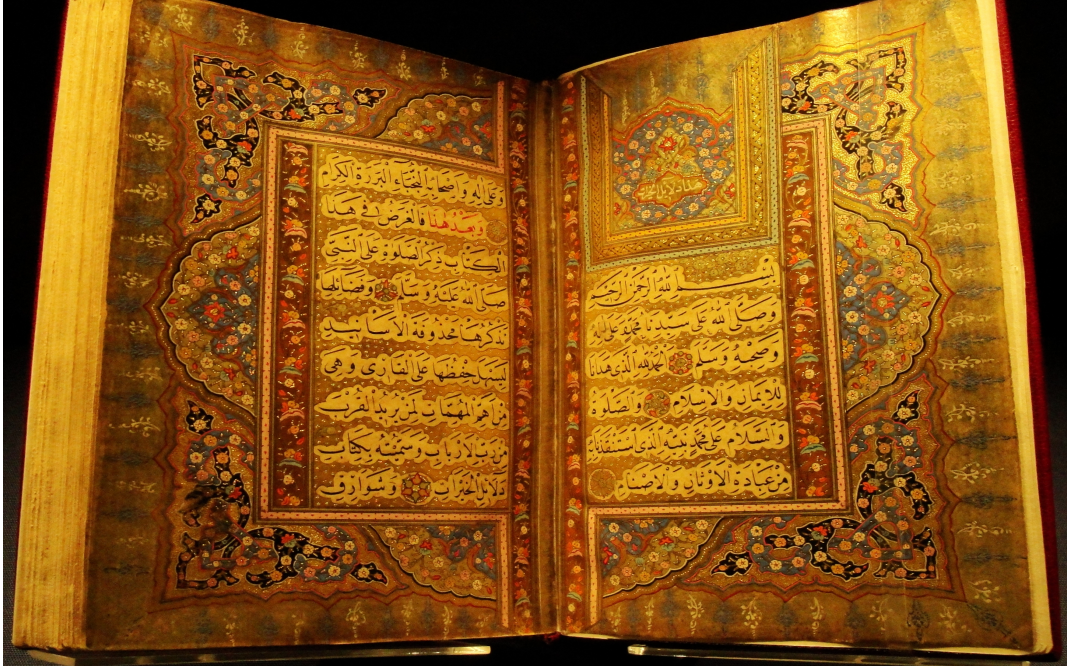 هذا دلائل الخيرات
بِسْمِ اللهِ الرَّحْمٰنِ الرَّحِيمِ
وَصَلَّى اللهُ عَلَى سَيِّدِنَا مُحَمَّدٍ وَعَلَى اٰلِهِ
وَصَحْبِهِ وَسَلَّمَ اَلْحَمْدُ لِلّٰهِ الَّذِي هَدَانَا
لِلْاِيمَانِ وَالْاِسْلَامِ وَالصَّلٰوةُ
وَالسَّلَامُ عَلَى مُحَمَّدٍ نَبِيِّهِ الَّذِي اسْتَنْقَذَنَا بِهِ
مِنْ عِبَادَةِ الْاَوْثَانِ وَالْاَصْنَامِ
وَعَلَى اٰلِهِ وَاَصْحَابِهِ النُّجَبَاءِ الْبَرَرَةِ الْكِرَامِ
وَبَعْدَ هٰذَا فَالْغَرَضُ فِي هٰذَا
الْكِتَابِ ذِكْرُ الصَّلٰوةِ عَلَى النَّبِيِّ
صَلَّى اللهُ عَلَيْهِ وَسَلَّمَ وَفَضَائِلِهَا
نَذْكُرُهَا مَحْذُوفَةَ الْاَسَانِيدِ
لِيَسْهُلَ حِفْظُهَا عَلَى الْقَارِئِ وَهِيَ
مِنْ اَهَمِّ الْمُهِمَّاتِ لِمَنْ يُرِيدُ الْقُرْبَ
مِنْ رَبِّ الْاَرْبَابِ وَسَمَّيْتُهُ بِكِتَابِ
دَلَائِلِ الْخَيْرَاتِ وَشَوَارِقِ